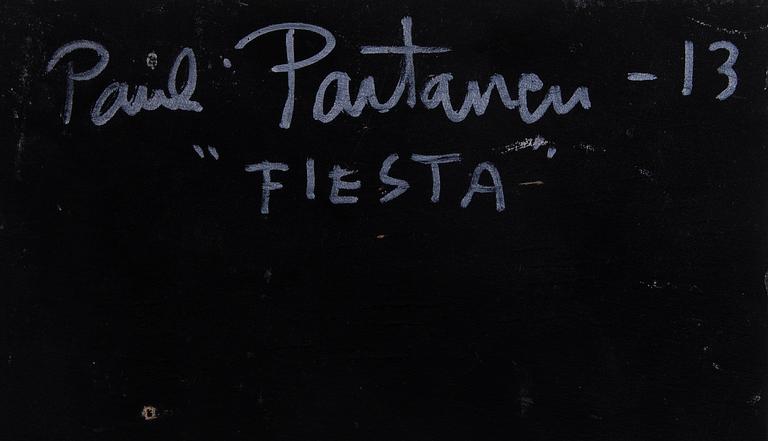 Paul Partanen - 13
"FIESTA"